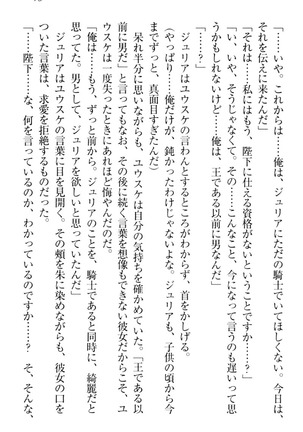 「……いや。これからは……俺は、ジュリアにただの騎士でいてほしくない。今日は、
それを伝えに来たんだ」
「それは……私にはもう、陛下に仕える資格がないということですか……？」
「い、いや、そうじゃなくて。その……こんなこと、今になって言うのも遅いって思
うかもしれないけど……俺は、王である以前に男なんだ」
「……？」
ジュリアはユウスケの言わんとするところがわからず、首をかしげる。
（やっぱり……俺だけが、鈍かったわけじゃないんだ。ジュリアも、子供の頃から今
までずっと、真面目すぎたんだ）
呆れ半分に思いながらも、ユウスケは自分の気持ちを確かめていた。「王である以
前に男だ」と言ってもなお、その後に続く言葉を想像もできない彼女だからこそ、ユ
ウスケは一度失ったときにあれほど悔やんだのだ。
「俺は……もう、ずっと前から。ジュリアのことを、騎士であると同時に、綺麗だと
思ってた。男として、ジュリアを欲しいと思っていたんだ」
ジュリアはユウスケの言葉に目を見開く。その頬を朱に染めながらも、彼女の口を
ついた言葉は、求愛を拒絶するものだった。
「……陛下……な、何を言っているのか、わかっているのですか……？　そ、そんな、